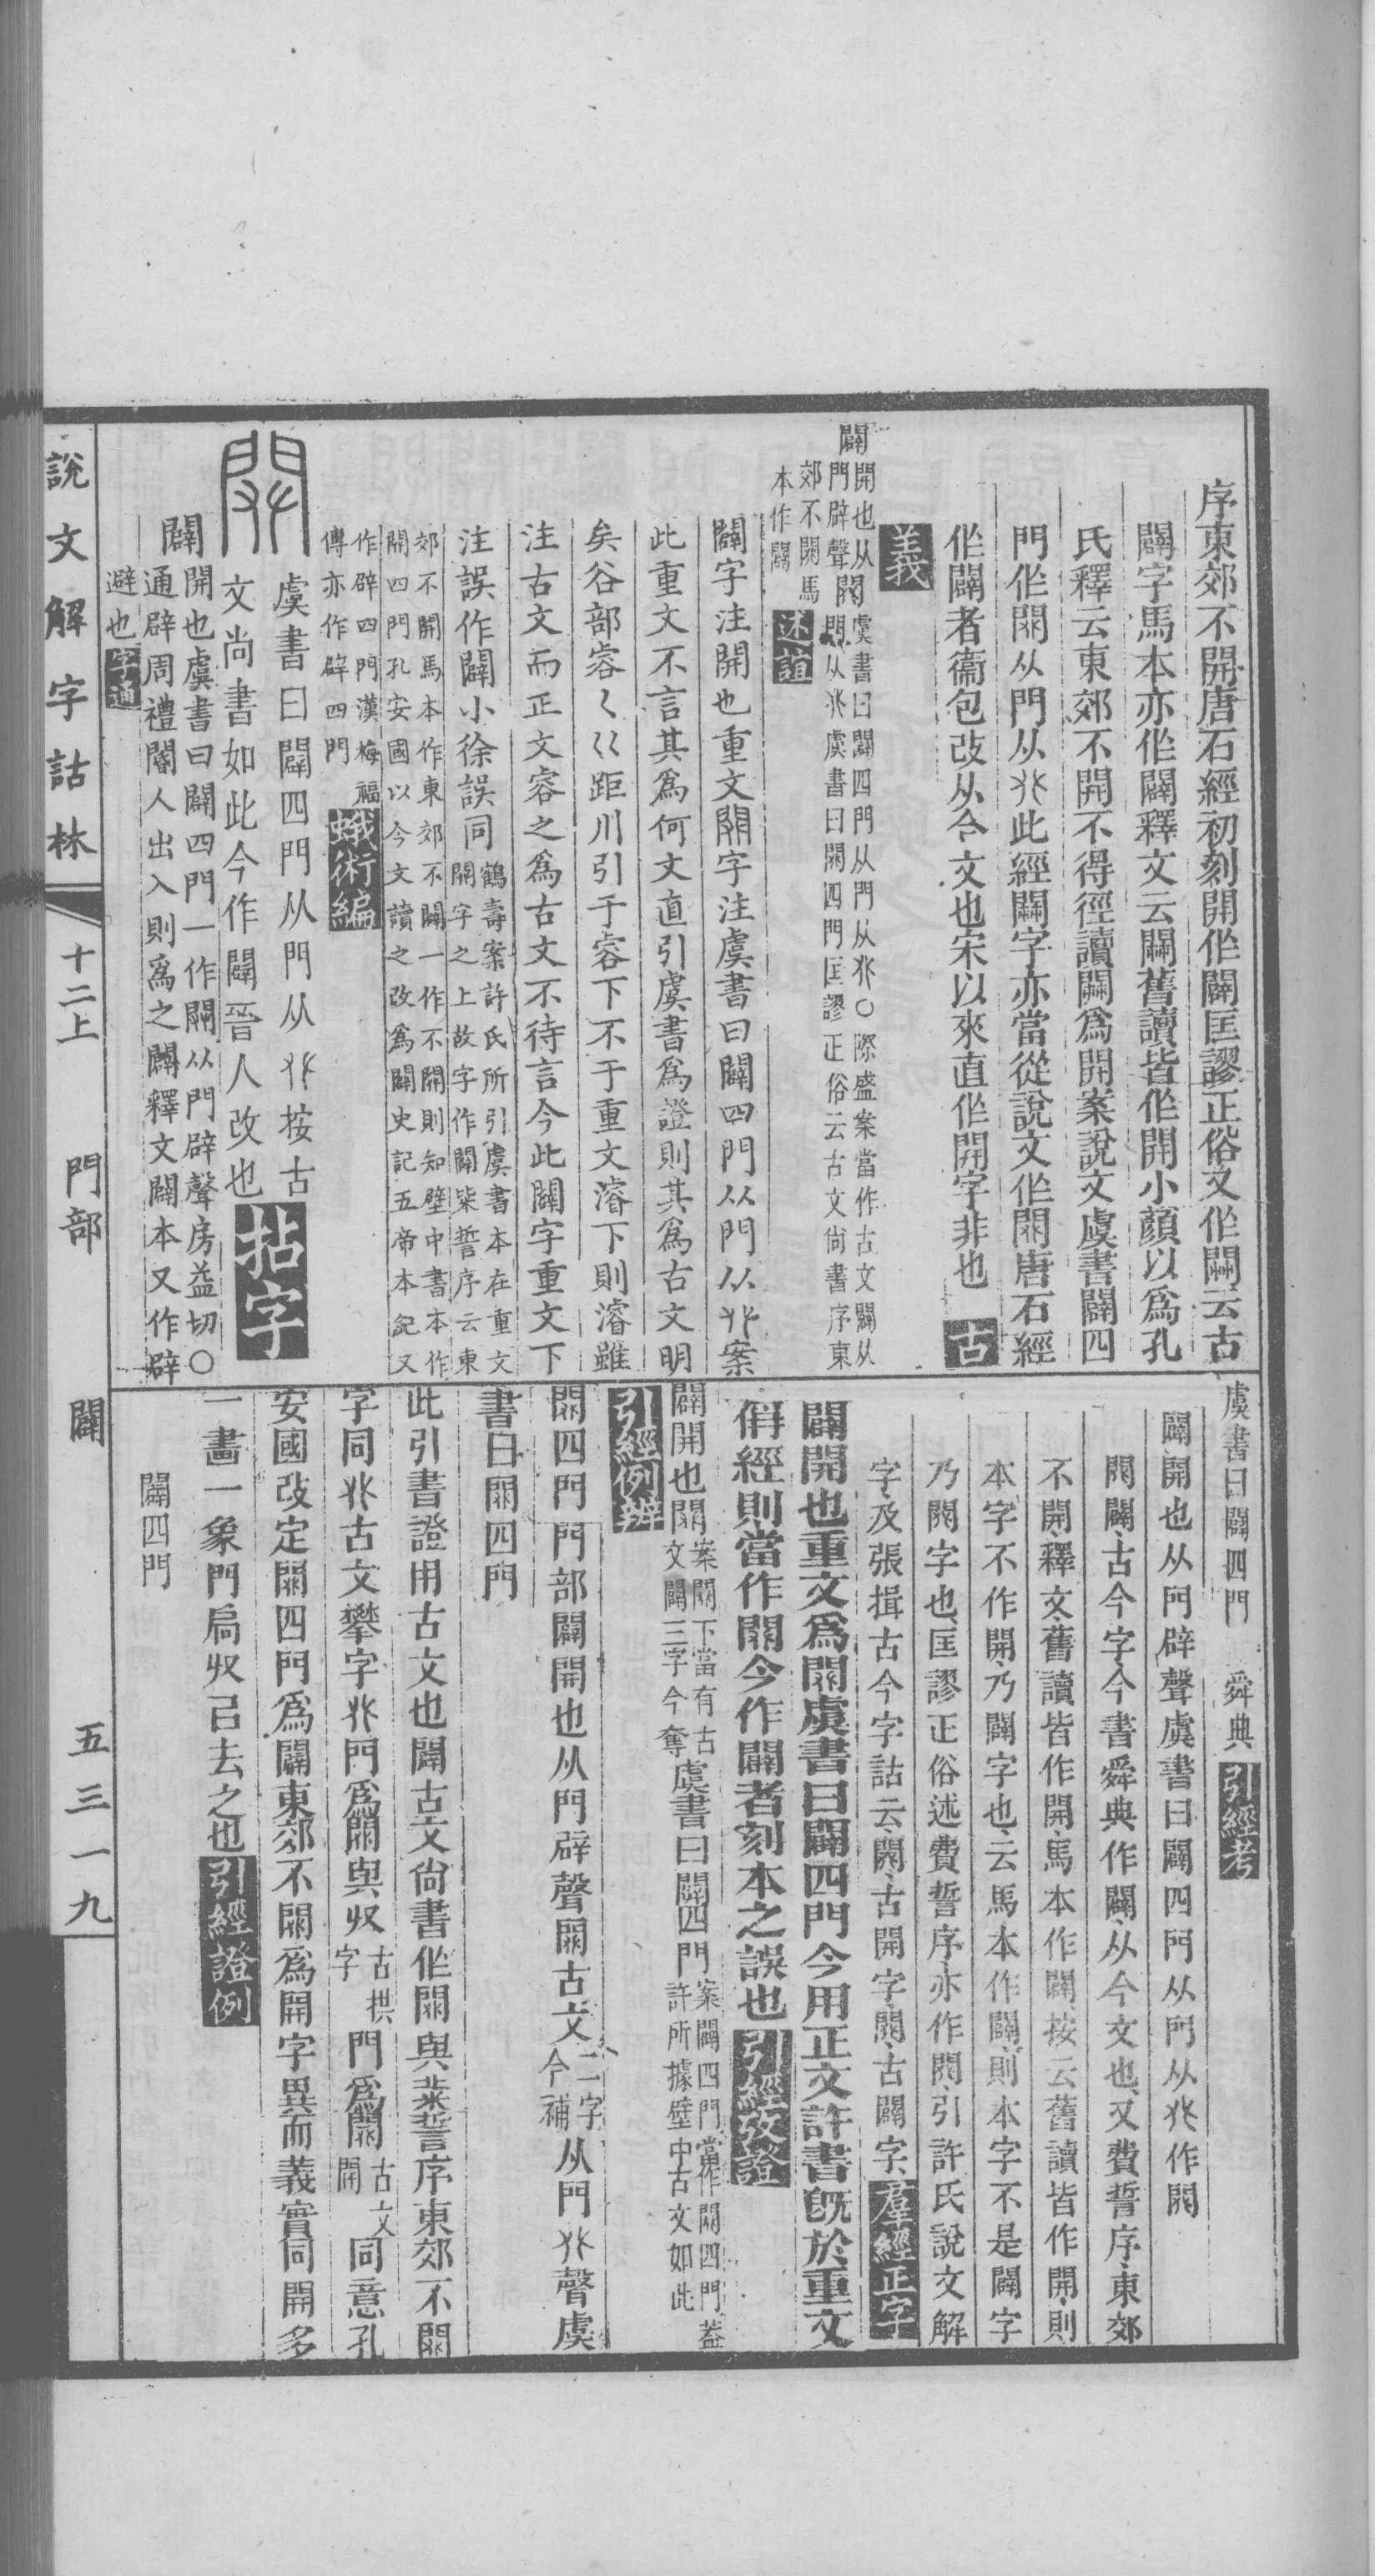 序東郊不開唐石經初刻開作闢匡謬正俗又作闢云古
闢字馬本亦作闢釋文云闢舊讀皆作開小顏以爲孔
氏釋云東郊不開不得徑讀闢爲開案說文虞書闢四
門作𨳿从門从𠬜此經闢字亦當從說文作𨳿唐石經
作闢者衞包改从今文也宋以來直作開字非也 古
義
闢開也从門辟聲𨳿虞書曰闢四門从門从𠬜〇際盛案當作古文闢从門从𠬜虞書曰𨳿四門匡謬正俗云古文尚書序東
郊不𨳿馬本作闢 述誼
闢字注開也重文𨳿字注虞書曰闢四門从門从𠬜案
此重文不言其爲何文直引虞書爲證則其爲古文明
矣谷部容〈巜距川引于容下不于重文濬下則濬雖
注古文而正文容之爲古文不待言今此闢字重文下
注誤作闢小徐誤同鶴壽案許氏所引虞書本在重文𨳿字之上故字作闢柴誓序云東
郊不開馬本作東郊不闢一作不𨳿則知壁中書本作𨳿四門孔安國以今文讀之改爲闢史記五帝本紀又
作辟四門漢梅福傳亦作辟四門 蛾術編
𨳿 虞書曰闢四門从門从𠬜按古
文尚書如此今作闢晉人改也 拈字
闢開也虞書曰闢四門一作𨳿从門辟聲房益切〇
通辟周禮閽人出入則爲之闢釋文闢本又作辟
避也 字通
虞書曰闢四門 舜典 引經考
闢開也从門辟聲虞書曰闢四門从門从𠬜作𨳿
𨳿闢古今字今書舜典作闢从今文也又費誓序東郊
不開釋文舊讀皆作開馬本作闢按云舊讀皆作開則
本字不作開乃闢字也云馬本作闢則本字不是闢字
乃𨳿字也匡謬正俗述費誓序亦作𨳿引許氏說文解
字及張揖古今字詁云𨳿古開字𨳿古闢字 羣經正字
闢開也重文爲𨳿虞書曰闢四門今用正文許書旣於重文
偁經則當作𨳿今作闢者刻本之誤也 引經攷證
闢開也𨳿案𨳿下當有古文闢三字今奪虞書曰闢四門案闢四門當作𨳿四門蓋許所據壁中古文如此
引經例辨
𨳿四門 門部闢開也从門辟聲𨳿古文二字今補从門𠬜聲虞
書曰𨳿四門
此引書證用古文也闢古文尚書作𨳿與粊誓序東郊不𨳿
字同𠬜古文攀字𠬜門爲𨳿與収古拱字門爲𨳿古文開同意孔
安國改定𨳿四門爲闢東郊不𨳿爲開字異而義實同開多
一畫一象門扃収已去之也 引經證例
闢四門
說文解字詁林
十二上 門部 闢 五三一九